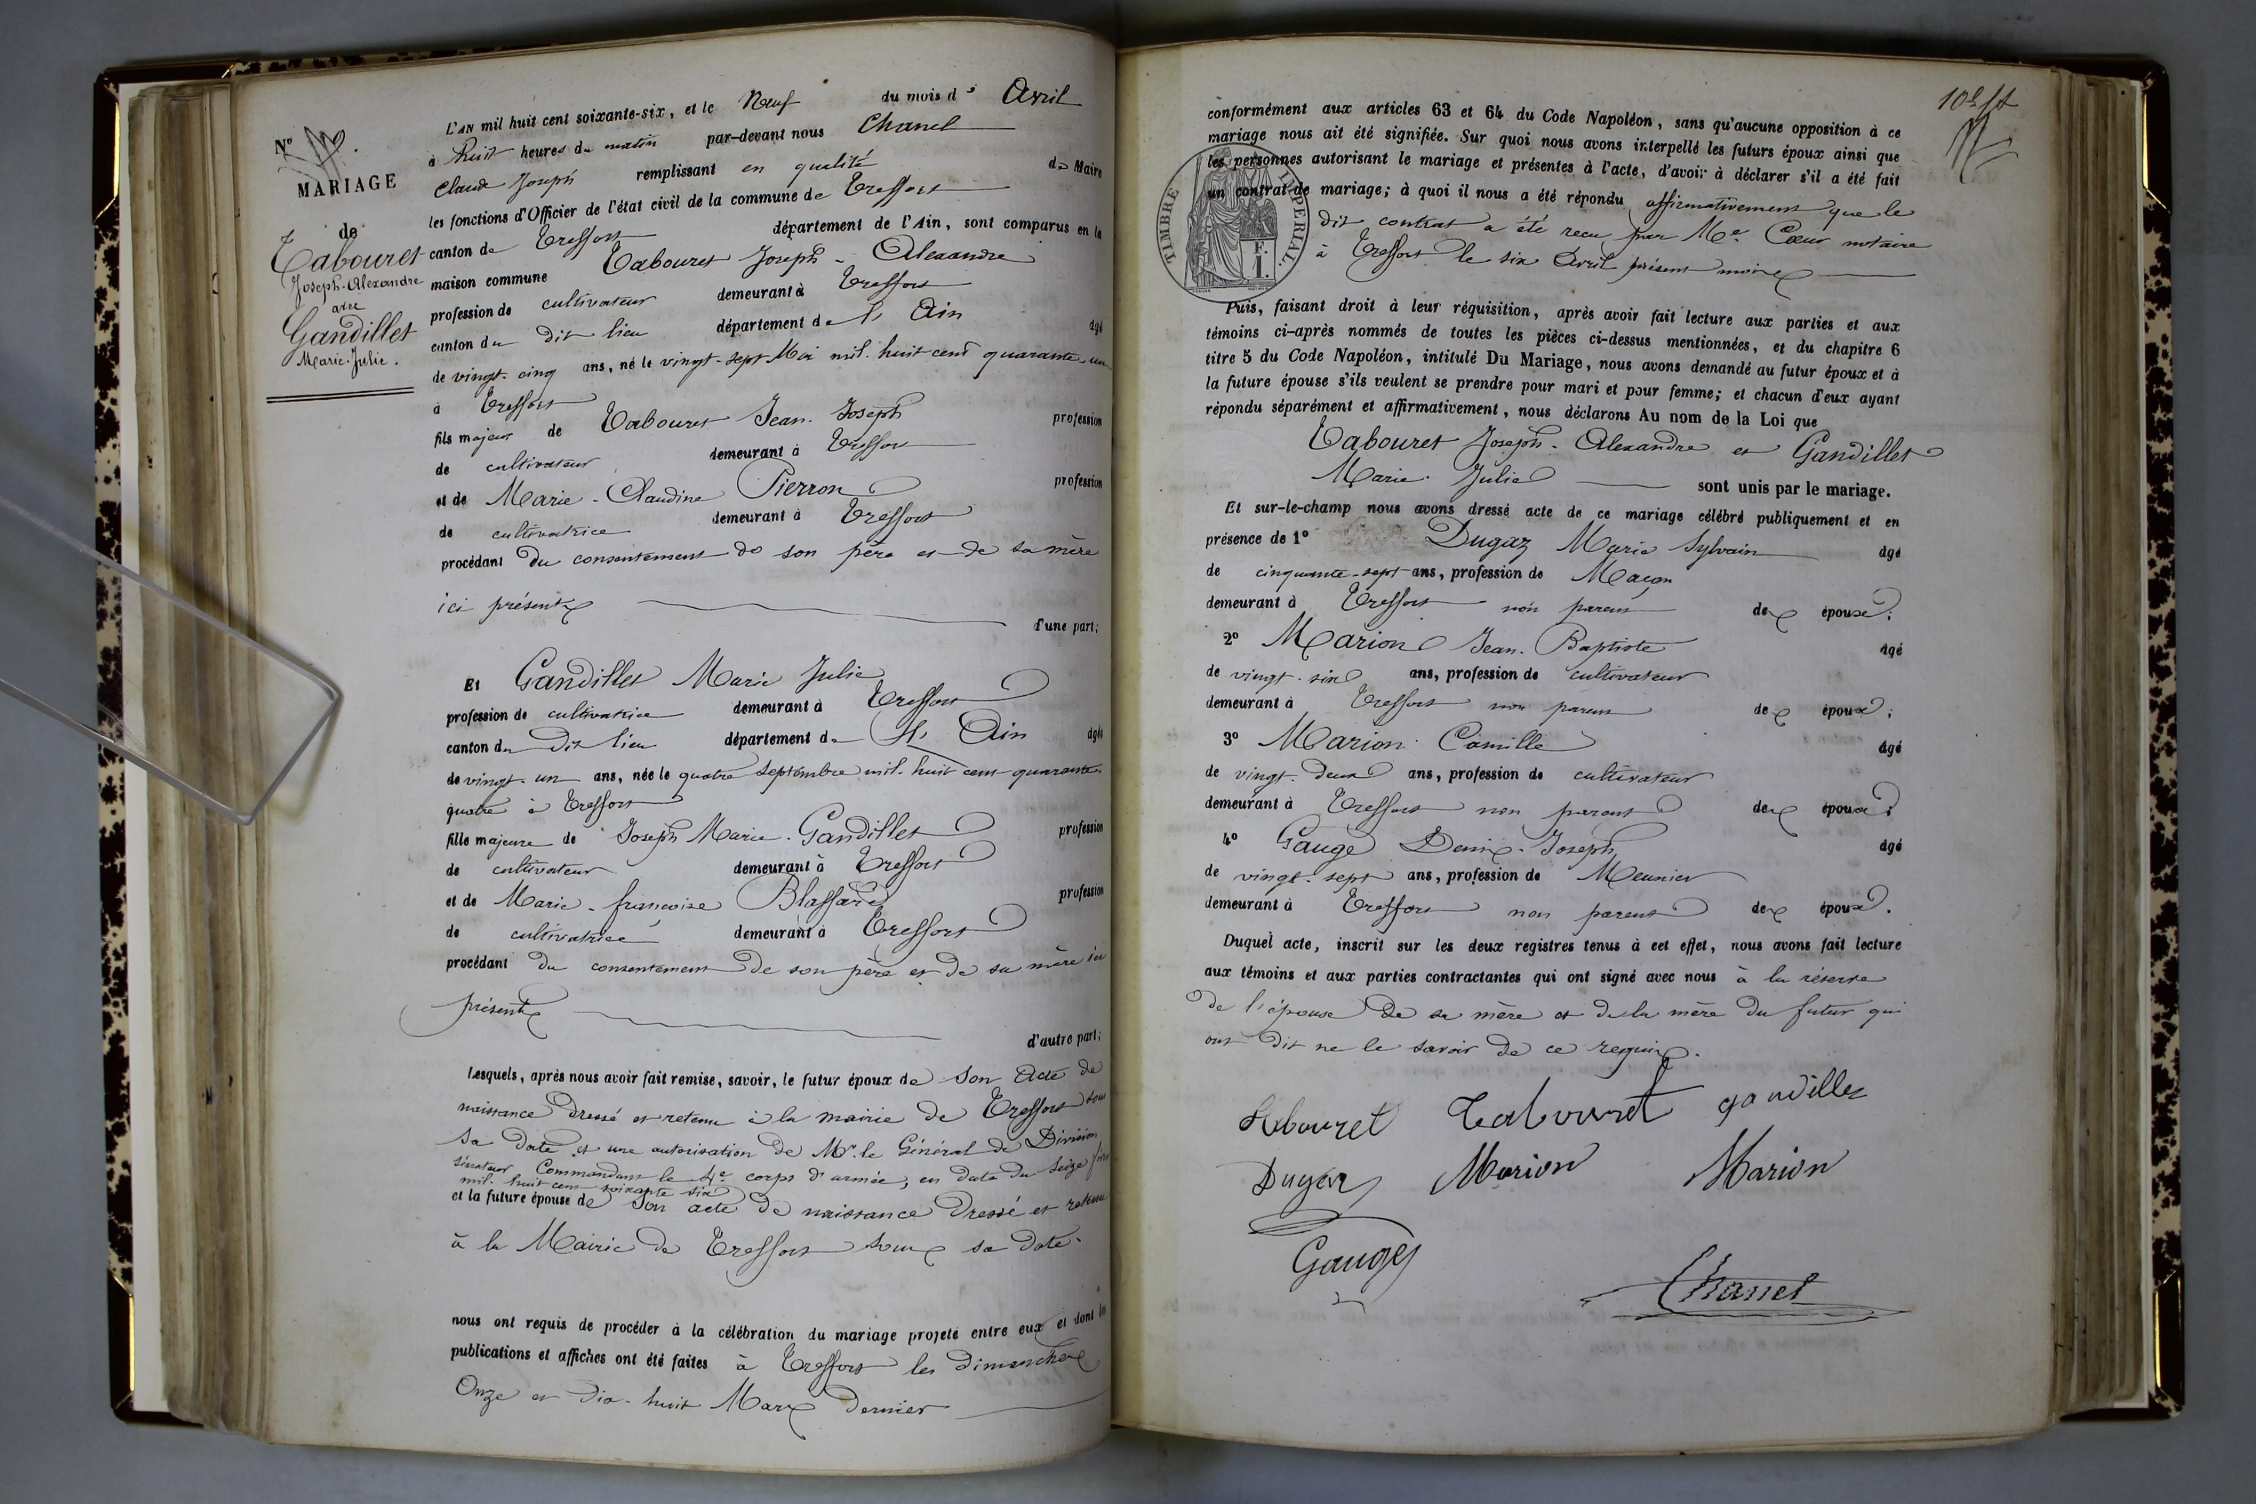 Nº
MARIAGE
de
Tabouret
Joseph-Alexandre
avec
Gandillet
Marie-Julie.
L'AN mil huit cent soixante-six, et le Neuf du mois d' Avril
à huit heures du matin par-devant nous Chanel
Claude Joseph remplissant en qualité de Maire
les fonctions d'Officier de l'état civil de la commune de Treffort
canton de Treffort département de l'Ain, sont comparus en la
maison commune Tabouret Joseph-Alexandre
profession de cultivateur demeurant à Treffort
canton du dit lieu département de l'Ain âgé
de vingt-cinq ans, né le vingt-sept Mai mil-huit cent quarante un
à Treffort
fils majeur de Tabouret Jean-Joseph profession
de cultivateur demeurant à Treffort
et de Marie-Claudine Pierron profession
de cultivatrice demeurant à Treffort
procédant du consentement de son père et de sa mère
ici présents
d'une part;
Et Gandillet Marie Julie
profession de cultivatrice demeurant à Treffort
canton du dit lieu département de l'Ain âgée
de vingt-un ans, née le quatre septembre mil-huit cent quarante-
quatre à Treffort
fille majeure de Joseph Marie Gandillet profession
de cultivateur demeurant à Treffort
et de Marie-françoise profession
de cultivatrice demeurant à Treffort
procédant du consentement de son père et de sa mère ici
présents
d'autre part;
Lesquels, après nous avoir fait remise, savoir, le futur époux de son acte de
naissance dressé et retenu à la mairie de Treffort sous
sa date et une autorisation de Mr. le Général de Division
sénateur Commandant le 4e corps d'armée, en date du seize
mil-huit cent soixante six
et la future épouse de son acte de naissance dressé et retenu
à la Mairie de Treffort sous sa date.
nous ont requis de procéder à la célébration du mariage projeté entre eux et dont les
publications et affiches ont été faites à Treffort les dimanches
Onze et dix-huit Mars dernier
conformément aux articles 63 et 64 du Code Napoléon, sans qu'aucune opposition à ce
mariage nous ait été signifiée. Sur quoi nous avons interpellé les futurs époux ainsi que
les personnes autorisant le mariage et présentes à l'acte, d'avoir à déclarer s'il a été fait
un contrat de mariage; à quoi il nous a été répondu affirmativement que le
dit contrat a été recu par Me. Cœur notaire
à Treffort le six Avril présent mois
TIMBRE IMPERIAL.
1 F.
Puis, faisant droit à leur réquisition, après avoir fait lecture aux parties et aux
témoins ci-après nommés de toutes les pièces ci-dessus mentionnées, et du chapitre 6
titre 5 du Code Napoléon, intitulé Du Mariage, nous avons demandé au futur époux et à
la future épouse s'ils veulent se prendre pour mari et pour femme; et chacun d'eux ayant
répondu séparément et affirmativement, nous déclarons Au nom de la Loi que
Tabouret Joseph-Alexandre et Gandillet
Marie-Julie sont unis par le mariage.
Et sur-le-champ nous avons dressé acte de ce mariage célébré publiquement et en
présence de 1º Dugaz Marie Sylvain âgé
de cinquante-sept ans, profession de Maçon
demeurant à Treffort non parent des époux;
2º Marion Jean-Baptiste âgé
de vingt-six ans, profession de cultivateur
demeurant à Treffort non parent des époux;
3º Marion Camille âgé
de vingt-deux ans, profession de cultivateur
demeurant à Treffort non parent des époux;
4º Gauge Denis-Joseph âgé
de vingt-sept ans, profession de Meunier
demeurant à Treffort non parent des époux.
Duquel acte, inscrit sur les deux registres tenus à cet effet, nous avons fait lecture
aux témoins et aux parties contractantes qui ont signé avec nous à la réserve
de l'épouse de sa mère et de la mère du futur qui
ont dit ne le savoir de ce requis.
Tabouret Tabouret gandillet
Dugaz Marion Marion
Gauge
Chanel